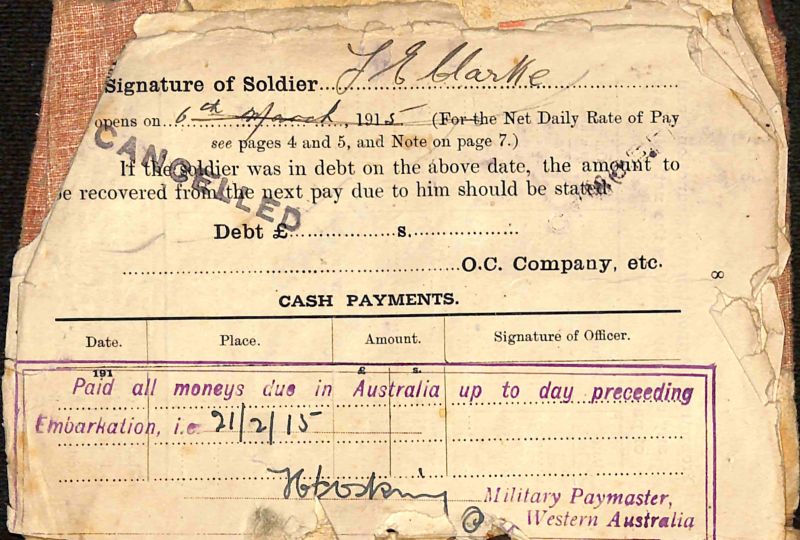 Signature of Soldier J E Clarke
opens on 6th March, 1915. (For the Net Daily Rate of Pay
see pages 4 and 5, and Note on page 7.)
CANCELLED
If the soldier was in debt on the above date, the amount to
be recovered from the next pay due to him should be stated.
Debt £ s.
O.C. Company, etc.
8
CASH PAYMENTS.
Date. Place. Amount. Signature of Officer.
191 £ s.
Paid all moneys due in Australia up to day preceeding
Embarkation, i.e. 21/2/15
Military Paymaster,
Western Australia